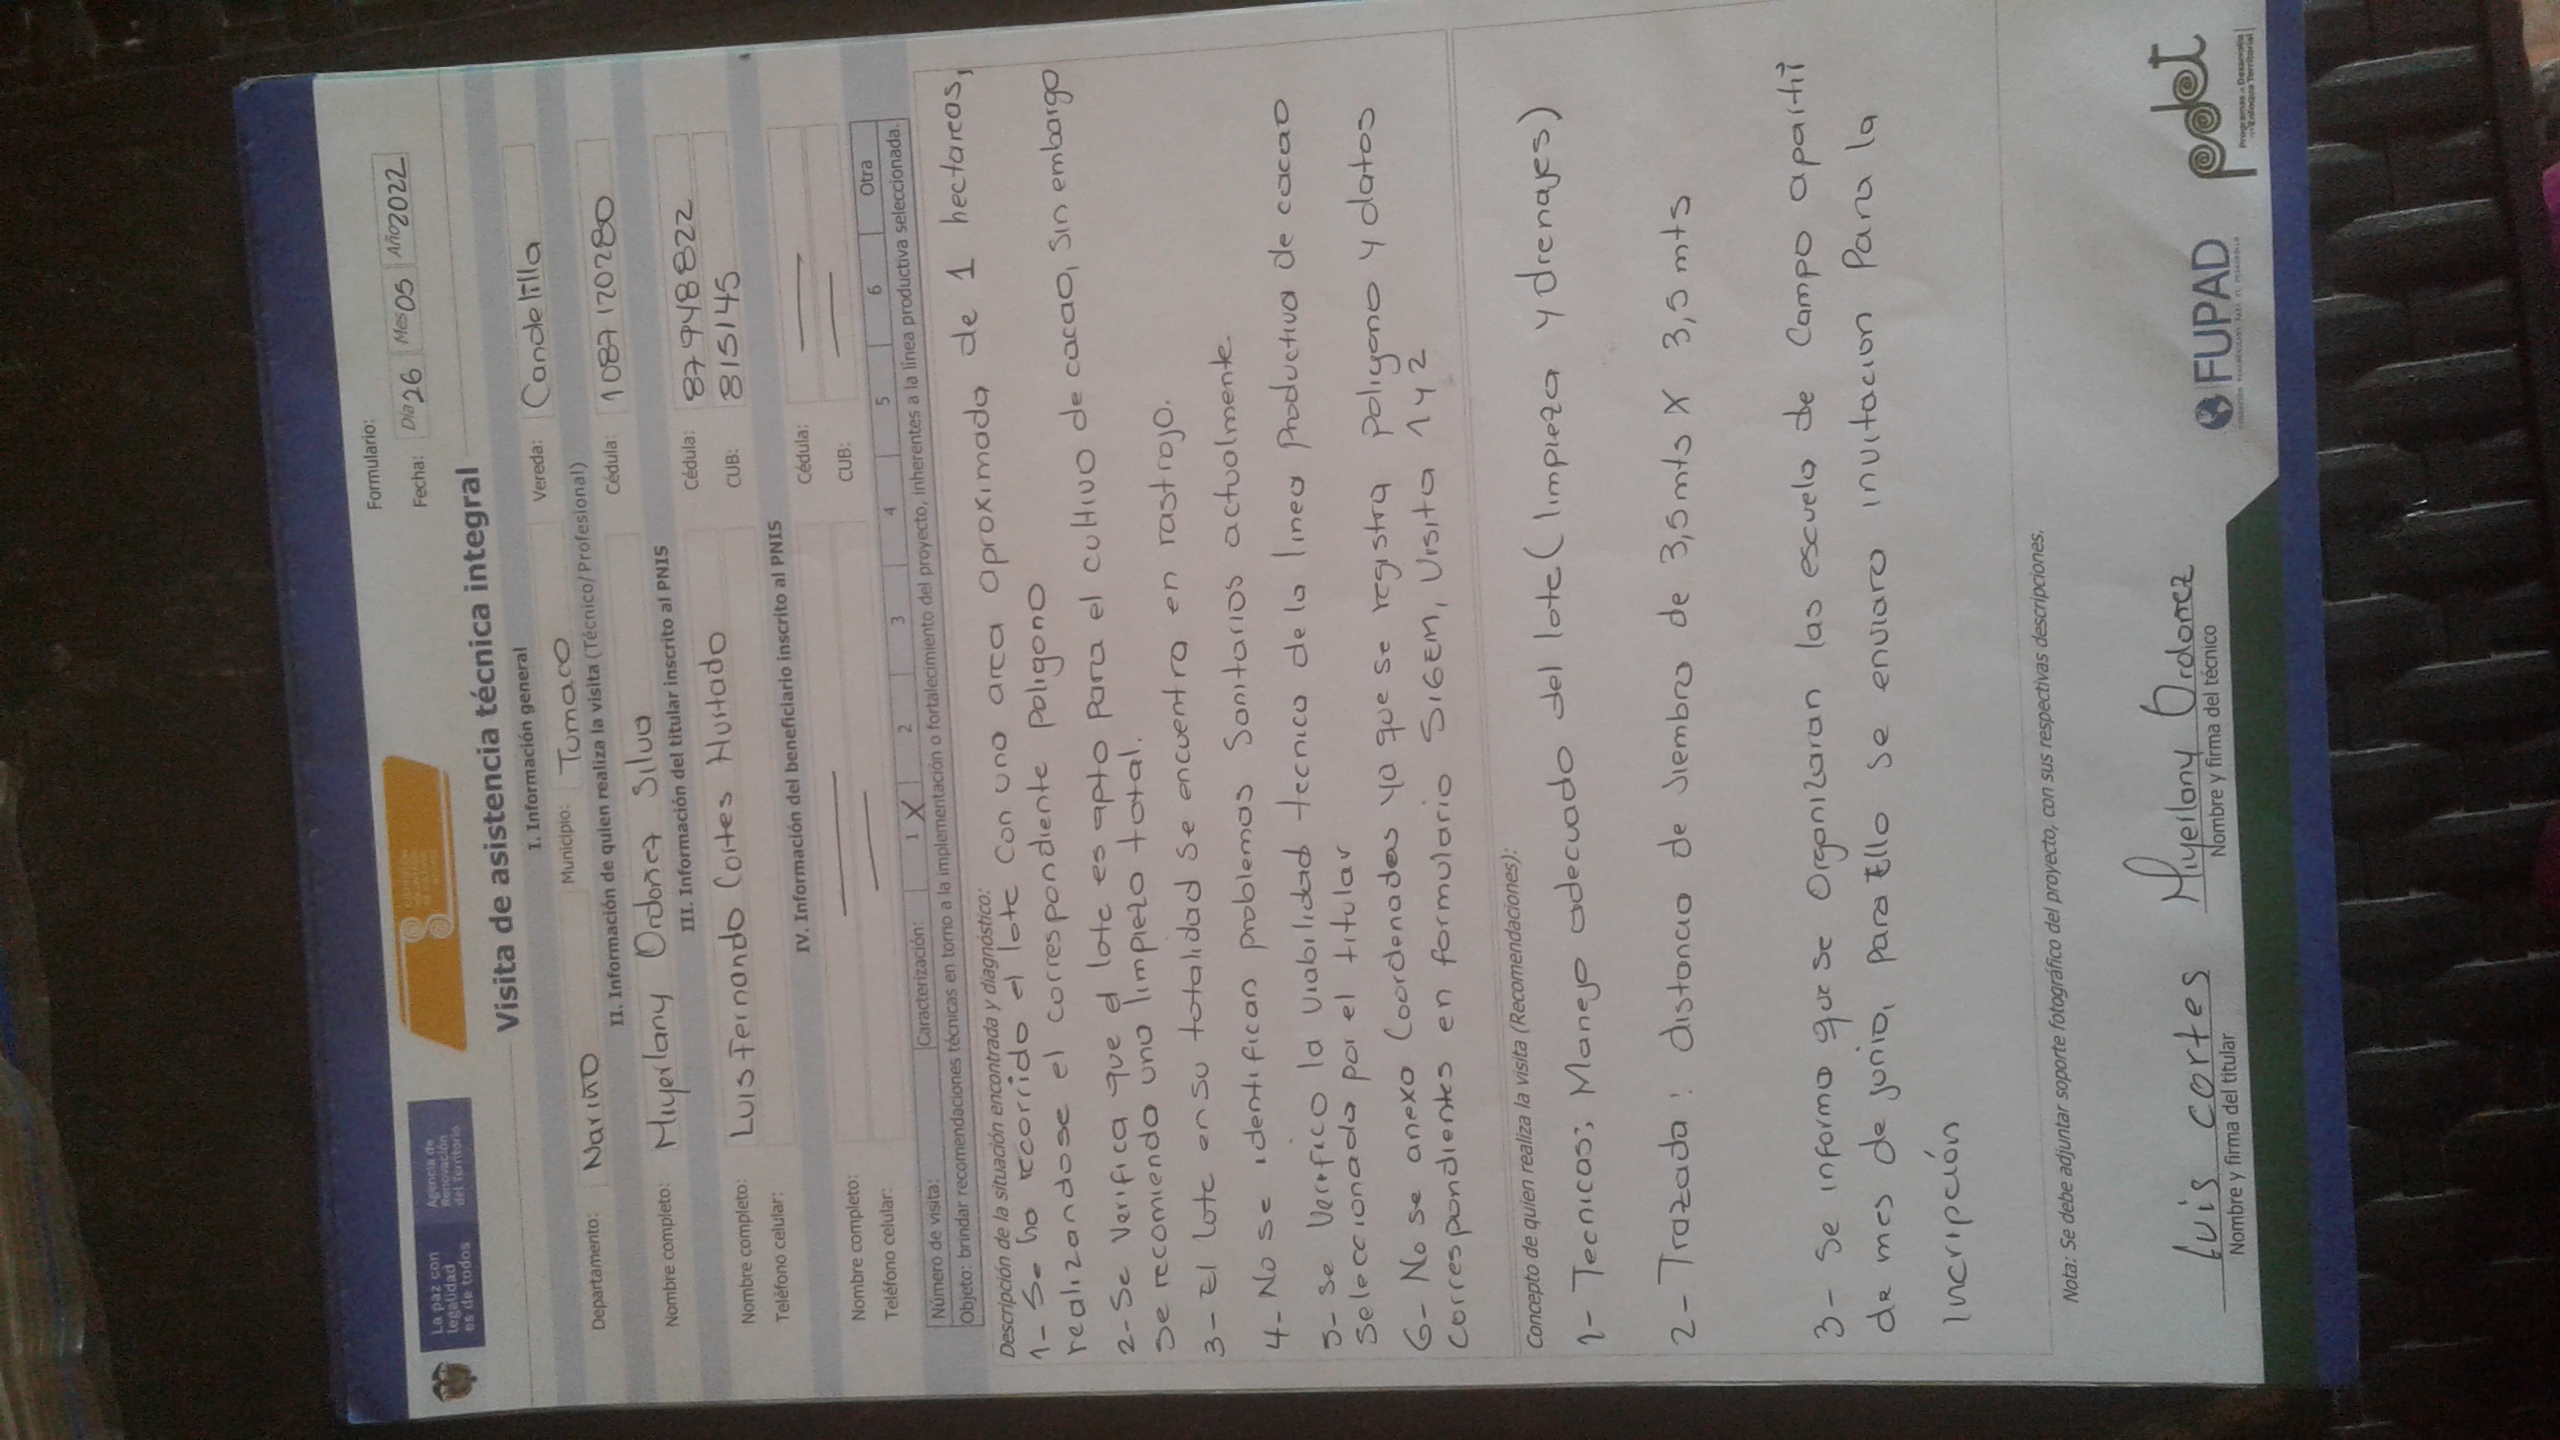 La paz con
legalidad
es de todos
Agencia de
Renovación
del Territorio
Formulario:
Fecha: Día 26 Mes 05 Año 2022
Visita de asistencia técnica integral
I. Información general
Departamento: Nariño Municipio: Tumaco Vereda: Candelilla
II. Información de quien realiza la visita (Técnico/Profesional)
Nombre completo: Miyerlany Ordoñez Silva Cédula: 1087120280
III. Información del titular inscrito al PNIS
Nombre completo: Luis Fernando Cortes Hurtado Cédula: 87948822
Teléfono celular: CUB: 815145
IV. Información del beneficiario inscrito al PNIS
Nombre completo: Cédula:
Teléfono celular: CUB:
Número de visita: Caracterización: 1 X 2 3 4 5 6 Otra
Objeto: brindar recomendaciones técnicas en torno a la implementación o fortalecimiento del proyecto, inherentes a la línea productiva seleccionada.
Descripción de la situación encontrada y diagnóstico:
1- Se ha recorrido el lote con una area aproximada de 1 hectareas,
realizandose el correspondiente poligono
2- Se Verifica que el lote es apto para el cultivo de cacao, sin embargo
se recomienda una limpieza total.
3- El lote en su totalidad se encuentra en rastrojo.
4- No se identifican problemas Sanitarios actualmente.
5- se Verifico la viabilidad tecnica de la linea productiva de cacao
seleccionada por el titular
6- No se anexa Coordenadas ya que se registra poligono y datos
Correspondientes en formulario SIGEM, Visita 1 y 2
Concepto de quien realiza la visita (Recomendaciones):
1- Tecnicas; Manejo adecuado del lote (limpieza y drenajes)
2- Trazada: distancia de siembra de 3,5 mts X 3,5 mts
3- Se informa que se Organizaran las escuela de Campo apartir
de mes de junio, para Ello se enviara invitacion Para la
Incripción
Nota: Se debe adjuntar soporte fotográfico del proyecto, con sus respectivas descripciones.
Luis cortes Miyerlany Ordoñez
Nombre y firma del titular Nombre y firma del técnico
FUPAD
pdet
Programas de Desarrollo
con Enfoque Territorial